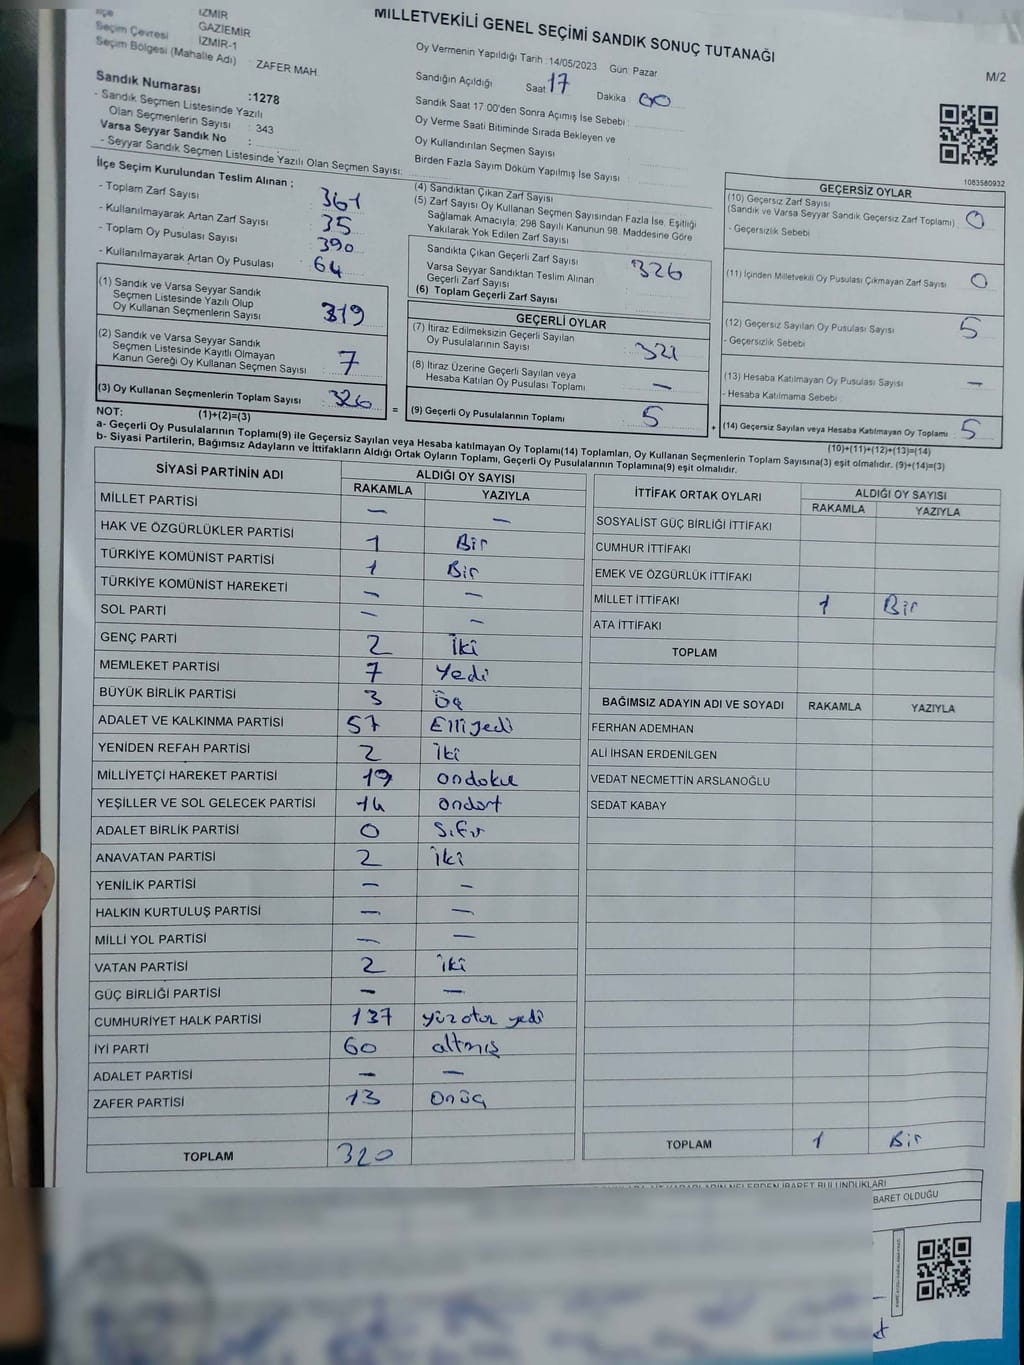 MİLLETVEKİLİ GENEL SEÇİMİ SANDIK SONUÇ TUTANAĞI
M/2
İlçe
İZMİR
GAZİEMİR
Seçim Çevresi İZMİR-1
Seçim Bölgesi (Mahalle Adı) ZAFER MAH
Sandık Numarası :1278
- Sandık Seçmen Listesinde Yazılı
Olan Seçmenlerin Sayısı : 343
Varsa Seyyar Sandık No :
- Seyyar Sandık Seçmen Listesinde Yazılı Olan Seçmen Sayısı:
Oy Vermenin Yapıldığı Tarih :14/05/2023 Gün: Pazar
Sandığın Açıldığı Saat 17 Dakika : 00
Sandık Saat 17:00'den Sonra Açımış İse Sebebi :
Oy Verme Saati Bitiminde Sırada Bekleyen ve
Oy Kullandırılan Seçmen Sayısı
Birden Fazla Sayım Döküm Yapılmış İse Sayısı
1083580932
İlçe Seçim Kurulundan Teslim Alınan ;
- Toplam Zarf Sayısı : 361
- Kullanılmayarak Artan Zarf Sayısı : 35
- Toplam Oy Pusulası Sayısı : 390
- Kullanılmayarak Artan Oy Pusulası : 64
(1) Sandık ve Varsa Seyyar Sandık
Seçmen Listesinde Yazılı Olup
Oy Kullanan Seçmenlerin Sayısı : 319
(2) Sandık ve Varsa Seyyar Sandık
Seçmen Listesinde Kayıtlı Olmayan
Kanun Gereği Oy Kullanan Seçmen Sayısı : 7
(3) Oy Kullanan Seçmenlerin Toplam Sayısı : 326
(1)+(2)=(3)
(4) Sandıktan Çıkan Zarf Sayısı
(5) Zarf Sayısı Oy Kullanan Seçmen Sayısından Fazla İse, Eşitliği
Sağlamak Amacıyla; 298 Sayılı Kanunun 98. Maddesine Göre
Yakılarak Yok Edilen Zarf Sayısı
Sandıkta Çıkan Geçerli Zarf Sayısı : 326
Varsa Seyyar Sandıktan Teslim Alınan
Geçerli Zarf Sayısı
(6) Toplam Geçerli Zarf Sayısı
GEÇERLİ OYLAR
(7) İtiraz Edilmeksizin Geçerli Sayılan
Oy Pusulalarının Sayısı : 321
(8) İtiraz Üzerine Geçerli Sayılan veya
Hesaba Katılan Oy Pusulası Toplamı : —
= (9) Geçerli Oy Pusulalarının Toplamı : 5
GEÇERSİZ OYLAR
(10) Geçersiz Zarf Sayısı
(Sandık ve Varsa Seyyar Sandık Geçersiz Zarf Toplamı) : 0
- Geçersizlik Sebebi
(11) İçinden Milletvekili Oy Pusulası Çıkmayan Zarf Sayısı : 0
(12) Geçersiz Sayılan Oy Pusulası Sayısı : 5
- Geçersizlik Sebebi
(13) Hesaba Katılmayan Oy Pusulası Sayısı : —
- Hesaba Katılmama Sebebi
+ (14) Geçersiz Sayılan veya Hesaba Katılmayan Oy Toplamı : 5
(10)+(11)+(12)+(13)=(14)
NOT:
a- Geçerli Oy Pusulalarının Toplamı(9) ile Geçersiz Sayılan veya Hesaba katılmayan Oy Toplamı(14) Toplamları, Oy Kullanan Seçmenlerin Toplam Sayısına(3) eşit olmalıdır. (9)+(14)=(3)
b- Siyasi Partilerin, Bağımsız Adayların ve İttifakların Aldığı Ortak Oyların Toplamı, Geçerli Oy Pusulalarının Toplamına(9) eşit olmalıdır.
SİYASİ PARTİNİN ADI ALDIĞI OY SAYISI
RAKAMLA YAZIYLA
MİLLET PARTİSİ — —
HAK VE ÖZGÜRLÜKLER PARTİSİ 1 Bir
TÜRKİYE KOMÜNİST PARTİSİ 1 Bir
TÜRKİYE KOMÜNİST HAREKETİ — —
SOL PARTİ — —
GENÇ PARTİ 2 İki
MEMLEKET PARTİSİ 7 Yedi
BÜYÜK BİRLİK PARTİSİ 3 Üç
ADALET VE KALKINMA PARTİSİ 57 Elliyedi
YENİDEN REFAH PARTİSİ 2 İki
MİLLİYETÇİ HAREKET PARTİSİ 19 ondoku
YEŞİLLER VE SOL GELECEK PARTİSİ 14 ondört
ADALET BİRLİK PARTİSİ 0 Sıfır
ANAVATAN PARTİSİ 2 İki
YENİLİK PARTİSİ — —
HALKIN KURTULUŞ PARTİSİ — —
MİLLİ YOL PARTİSİ — —
VATAN PARTİSİ 2 İki
GÜÇ BİRLİĞİ PARTİSİ — —
CUMHURİYET HALK PARTİSİ 137 yüzotuz yedi
İYİ PARTİ 60 altmış
ADALET PARTİSİ — —
ZAFER PARTİSİ 13 Onüç
TOPLAM 320
İTTİFAK ORTAK OYLARI ALDIĞI OY SAYISI
RAKAMLA YAZIYLA
SOSYALİST GÜÇ BİRLİĞİ İTTİFAKI
CUMHUR İTTİFAKI
EMEK VE ÖZGÜRLÜK İTTİFAKI
MİLLET İTTİFAKI 1 Bir
ATA İTTİFAKI
TOPLAM
BAĞIMSIZ ADAYIN ADI VE SOYADI RAKAMLA YAZIYLA
FERHAN ADEMHAN
ALİ İHSAN ERDENİLGEN
VEDAT NECMETTİN ARSLANOĞLU
SEDAT KABAY
TOPLAM 1 Bir
NELERDEN İBARET BULUNDUKLARI
BARET OLDUĞU